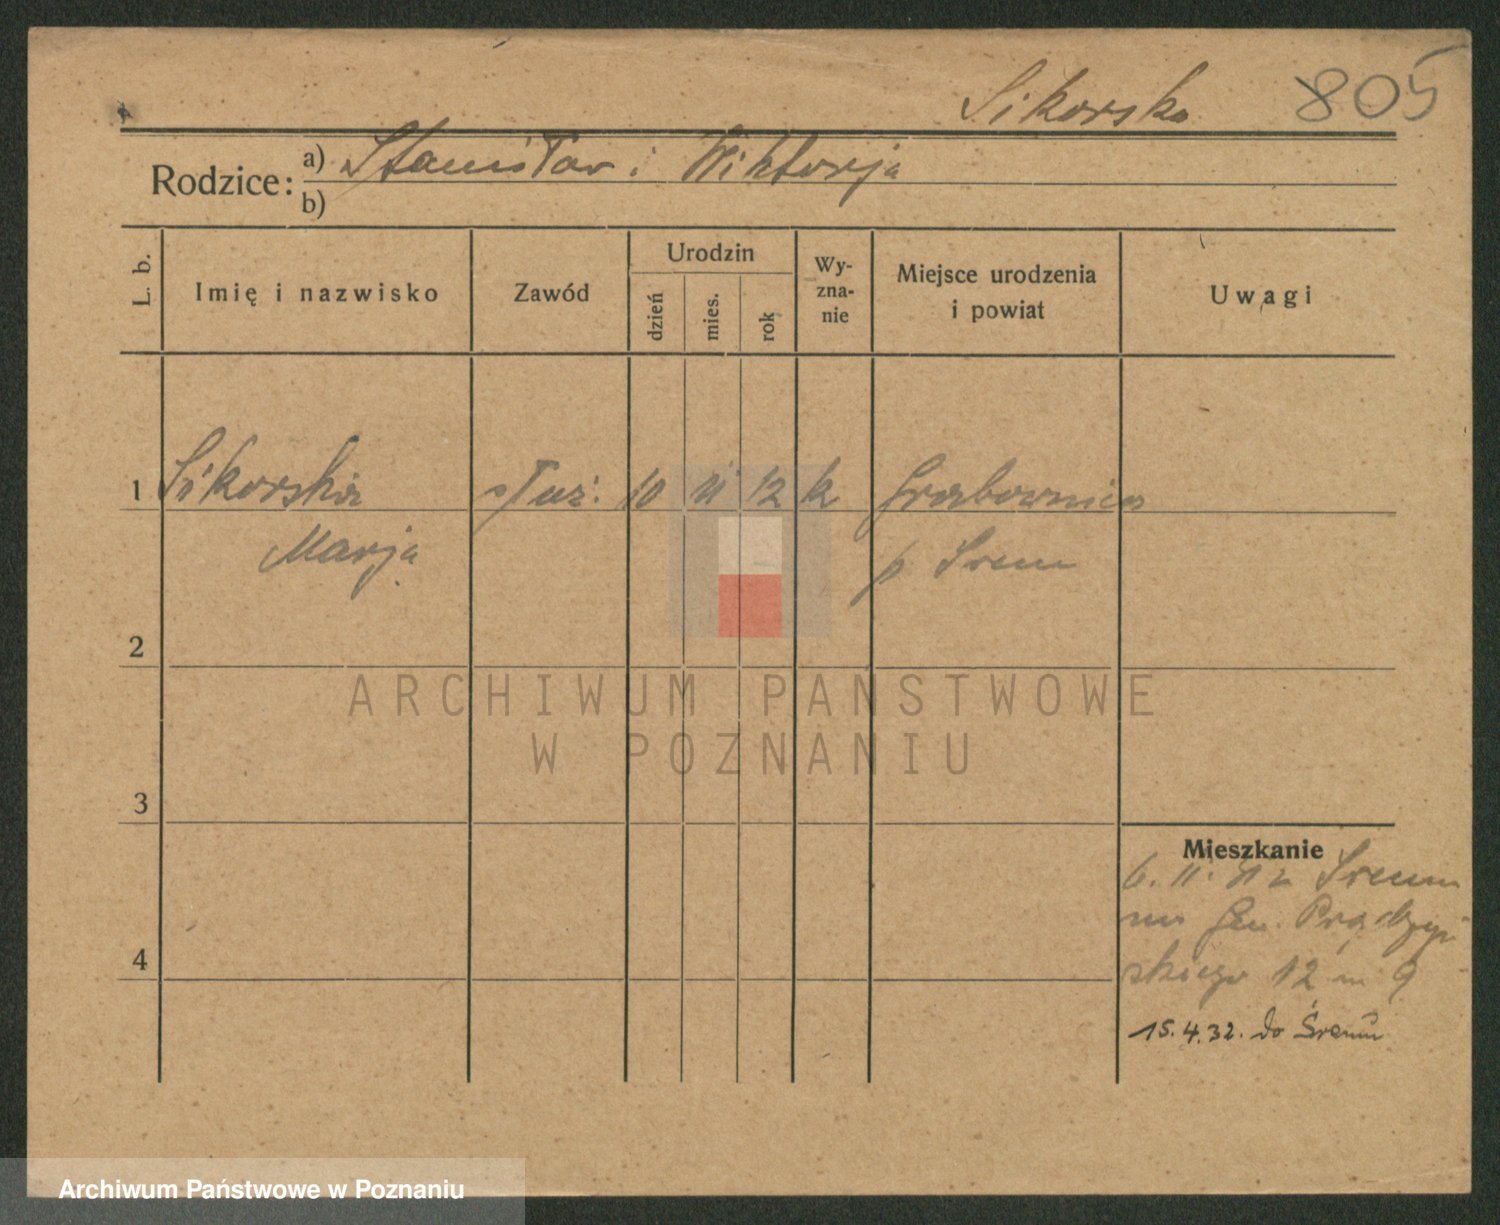 Sikorska 805
Rodzice: a) Stanisław i Wiktorja
b)
L. b.
Imię i nazwisko
Zawód
Urodzin
dzień
mies.
rok
Wy-
zna-
nie
Miejsce urodzenia
i powiat
Uwagi
1 Sikorska służ. 10 11 12 k Grabownica
Marja p Śrem
2
3
4
Mieszkanie
Śremu
na Gen. Prądzyń
skiego 12 m 9
15.4.32. do Śremu
ARCHIWUM PAŃSTWOWE
W POZNANIU
Archiwum Państwowe w Poznaniu